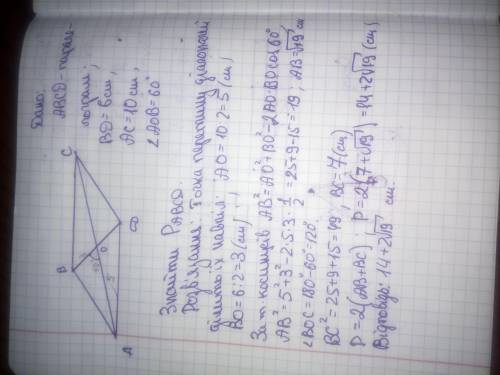 Дано:
ABCD - парале-
лограм;
BD = 6 см,
AC = 10 cm,
∠AOB = 60°
B
C
O
5
A
D
Знайти P ABCD.
Розв'язання: Точка перетину діагоналей
ділить їх навпіл: AO = 10:2 = 5 (см)
BO = 6:2 = 3 (см)
За т. косинусів AB² = AO² + BO² - 2AO·BO cos 60°
AB² = 5² + 3² - 2·5·3·1/2 = 25+9-15 = 19; AB = √19 см
∠BOC = 180°-60° = 120°
BC² = 25+9+15 = 49; BC = 7 (см)
P = 2(AB+BC); P = 2(7+√19) = 14+2√19 (см)
Відповідь: 14+2√19 см.